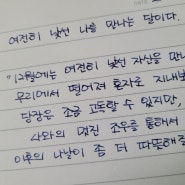 여전히 낯선 나를 만나는 달이다.
"12월에는 여전히 낯선 자신을 만나
무리에서 떨어져 혼자로 지내보
당장은 조금 고독할 수 있지만,
사와의 멋진 조우를 통해서
이후의 나날이 좀 더 따뜻해질